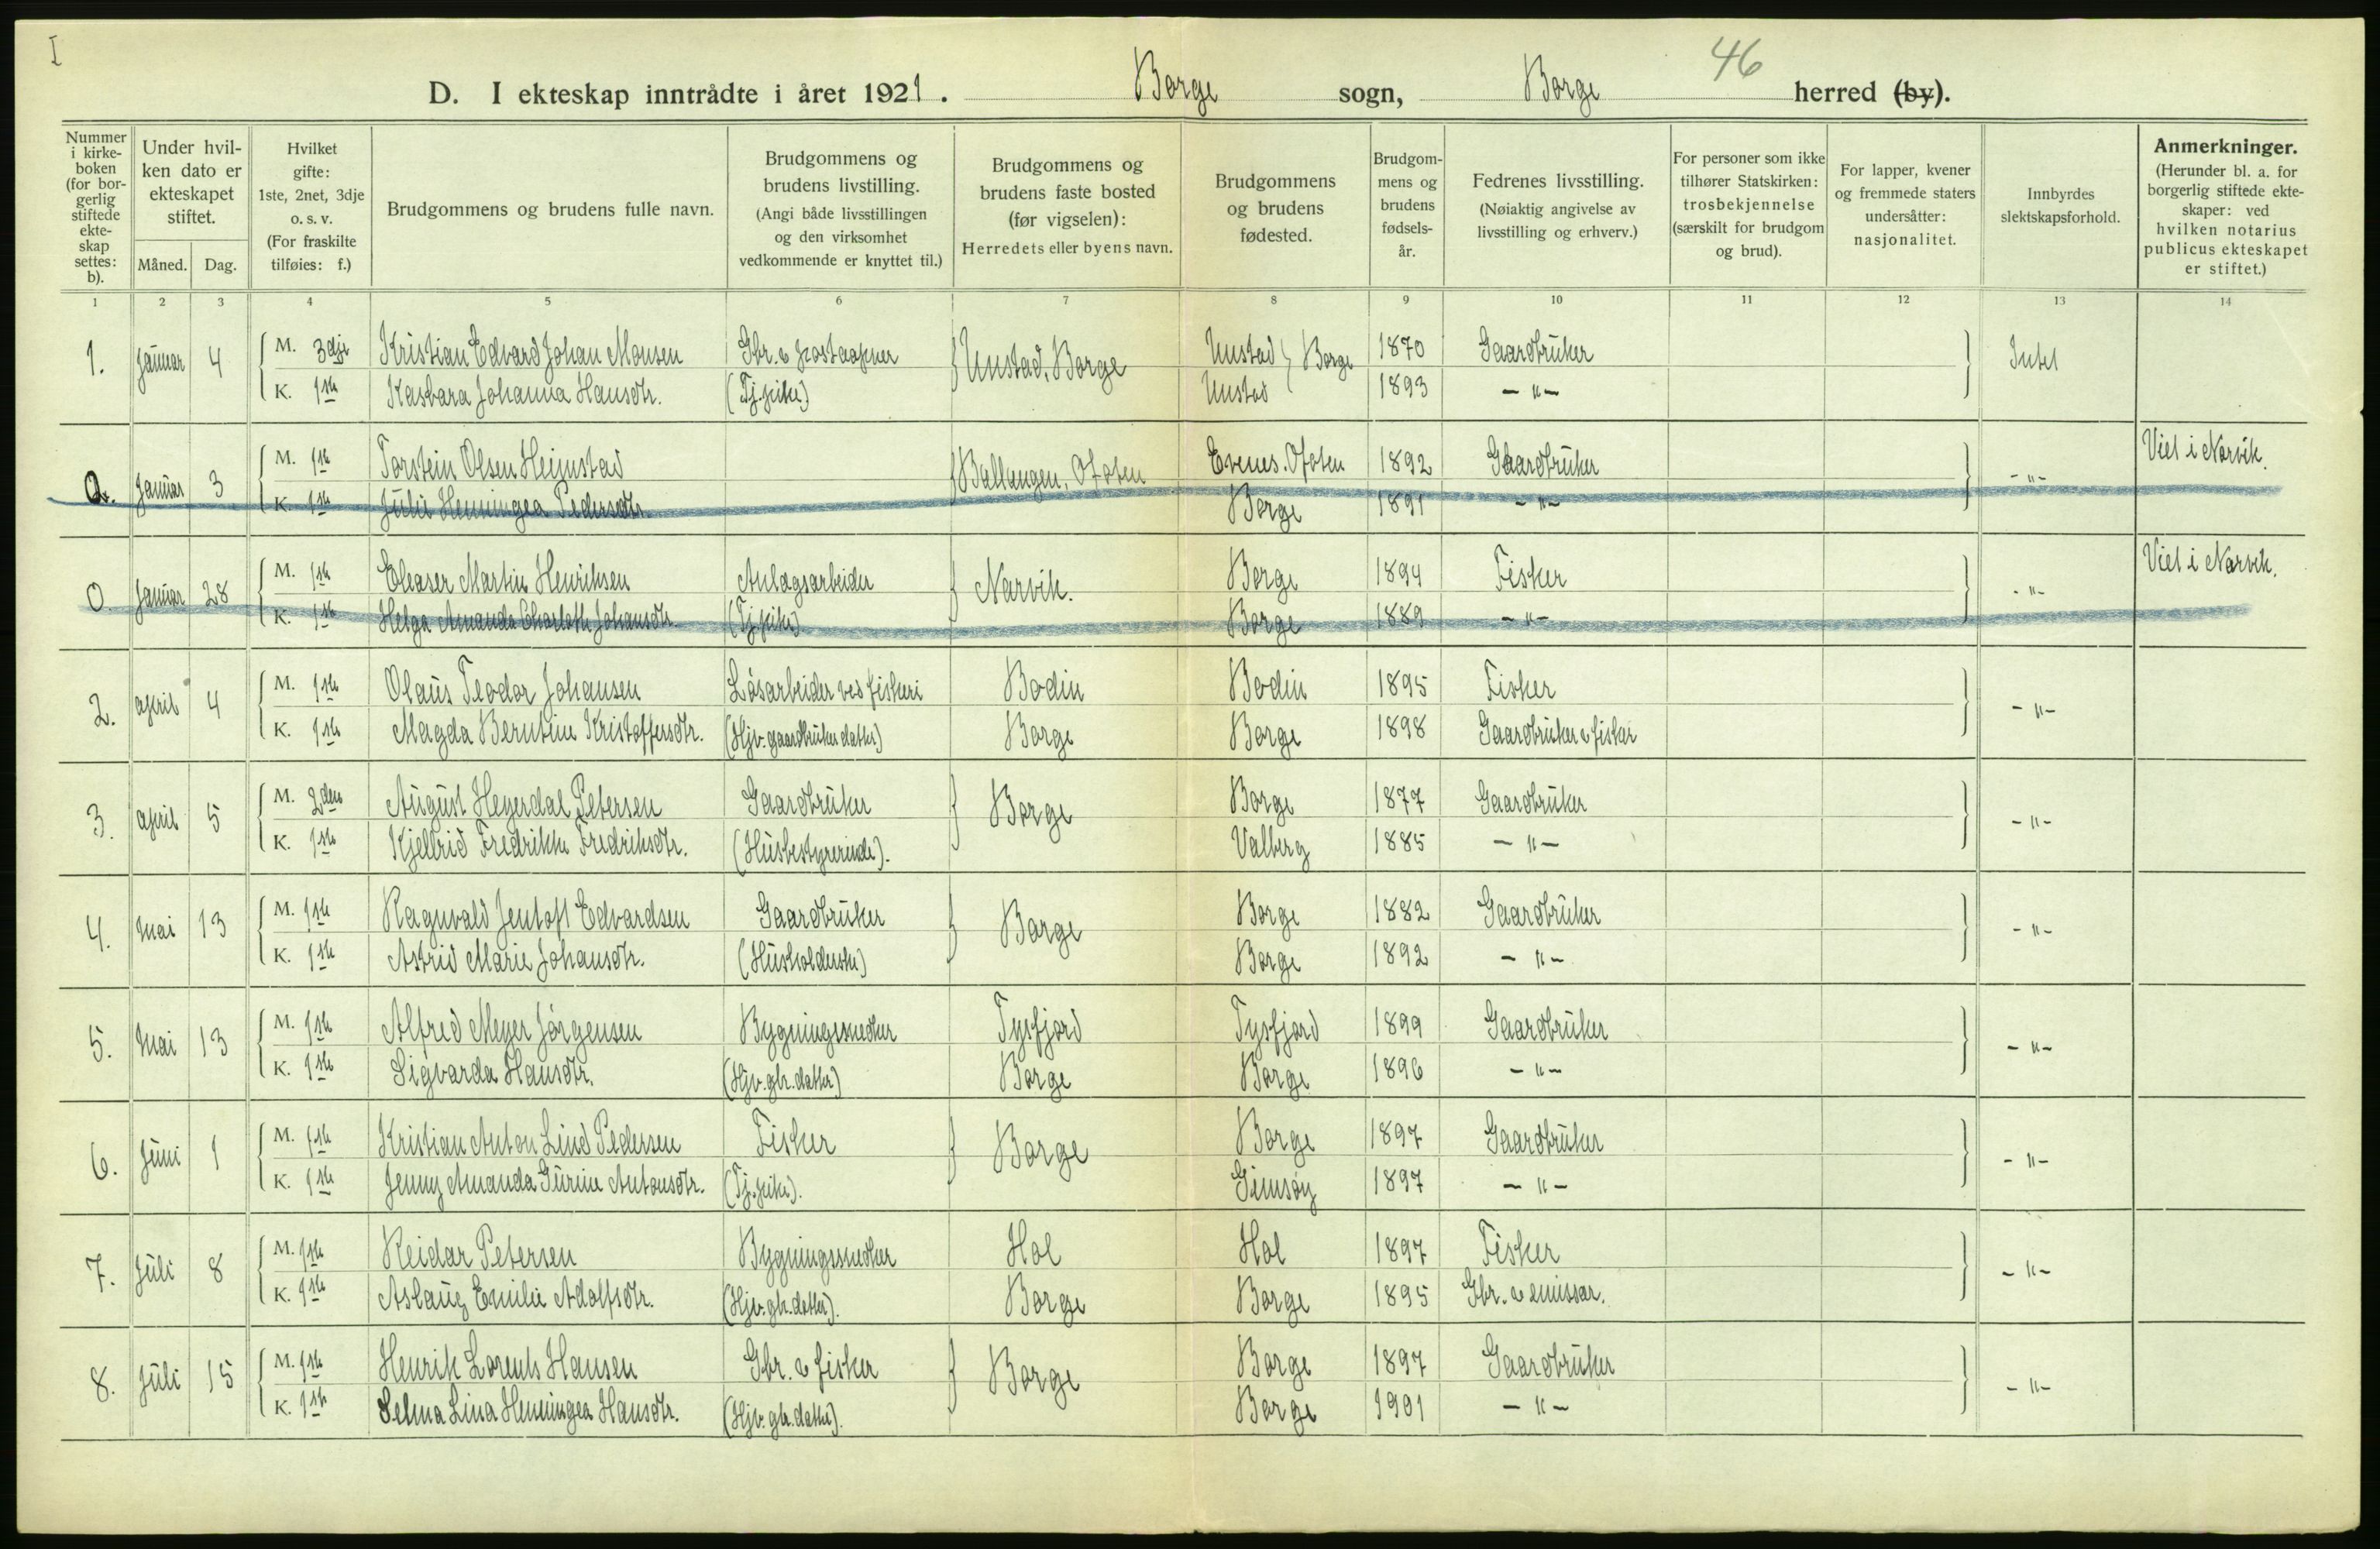 I
46
D. I ekteskap inntrådte i året 1921. Borge sogn, Borge herred (by).
Nummer i kirke-boken (for bor-gerlig stiftede ekte-skap settes: b).
Under hvil-ken dato er ekteskapet stiftet.
Måned. Dag.
Hvilket gifte: 1ste, 2net, 3dje o. s. v. (For fraskilte tilføies: f.)
Brudgommens og brudens fulle navn.
Brudgommens og brudens livstilling. (Angi både livsstillingen og den virksomhet vedkommende er knyttet til.)
Brudgommens og brudens faste bosted (før vigselen): Herredets eller byens navn.
Brudgommens og brudens fødested.
Brudgom-mens og brudens fødsels-år.
Fedrenes livsstilling. (Nøiaktig angivelse av livsstilling og erhverv.)
For personer som ikke tilhører Statskirken: trosbekjennelse (særskilt for brudgom og brud).
For lapper, kvener og fremmede staters undersåtter: nasjonalitet.
Innbyrdes slektskapsforhold.
Anmerkninger. (Herunder bl. a. for borgerlig stiftede ekte-skaper: ved hvilken notarius publicus ekteskapet er stiftet.)
1 2 3 4 5 6 7 8 9 10 11 12 13 14
1. Januar 4 M. 3dje Kristian Edvard Johan Monsen Gbr. & postaapner Unstad, Borge Unstad Borge 1870 Gaardbruker Intet
K. 1ste Kasbara Johanna Hansdtr. (Tj.pike) Unstad 1893 - " -
0. Januar 3 M. 1ste Torstein Olsen Heimstad Ballangen, Ofoten Evenes. Ofoten 1892 Gaardbruker - " - Viet i Narvik.
K. 1ste Julie Henningea Pedersdtr. Borge 1891 - " -
0. Januar 28 M. 1ste Eleaser Martin Henriksen Anlægsarbeider Narvik. Borge 1894 Fisker - " - Viet i Narvik.
K. 1ste Helga Amanda Charlotte Johansdtr. (Tj.pike) Borge 1889 - " -
2. April 4 M. 1ste Olaus Teodor Johansen Løsarbeider ved fiskeri Bodin Bodin 1895 Fisker - " -
K. 1ste Magda Berntine Kristoffersdtr. (Hjv. gaardbruker datter) Borge Borge 1898 Gaardbruker & fisker
3. April 5 M. 2den August Heyerdal Petersen Gaardbruker Borge Borge 1877 Gaardbruker - " -
K. 1ste Kjellrid Fredrikke Fredriksdtr. (Husbestyrerinde). Valberg 1885 - " -
4. Mai 13 M. 1ste Ragnvald Jentoft Edvardsen Gaardbruker Borge Borge 1882 Gaardbruker - " -
K. 1ste Astrid Marie Johansdtr. (Husholderske) Borge 1892 - " -
5. Mai 13 M. 1ste Alfred Meyer Jørgensen Bygningssnedker Tysfjord Tysfjord 1899 Gaardbruker - " -
K. 1ste Sigvarda Hansdtr. (Hjv. gbr. datter) Borge Borge 1896 - " -
6. Juni 1 M. 1ste Kristian Anton Lind Pedersen Fisker Borge Borge 1897 Gaardbruker - " -
K. 1ste Jenny Amanda Gurine Antonsdtr. (Tj.pike). Gimsøy 1897 - " -
7. Juli 8 M. 1ste Reidar Petersen Bygningssnedker Hol Hol 1897 Fisker - " -
K. 1ste Aslaug Emilie Adolfsdtr. (Hjv. gbr. datter). Borge Borge 1895 Gbr. & emissær.
8. Juli 15 M. 1ste Henrik Lorents Hansen Gbr. & fisker Borge Borge 1897 Gaardbruker - " -
K. 1ste Selma Lina Henningea Hansdtr. (Hjv. gbr. datter). Borge 1901 - " -